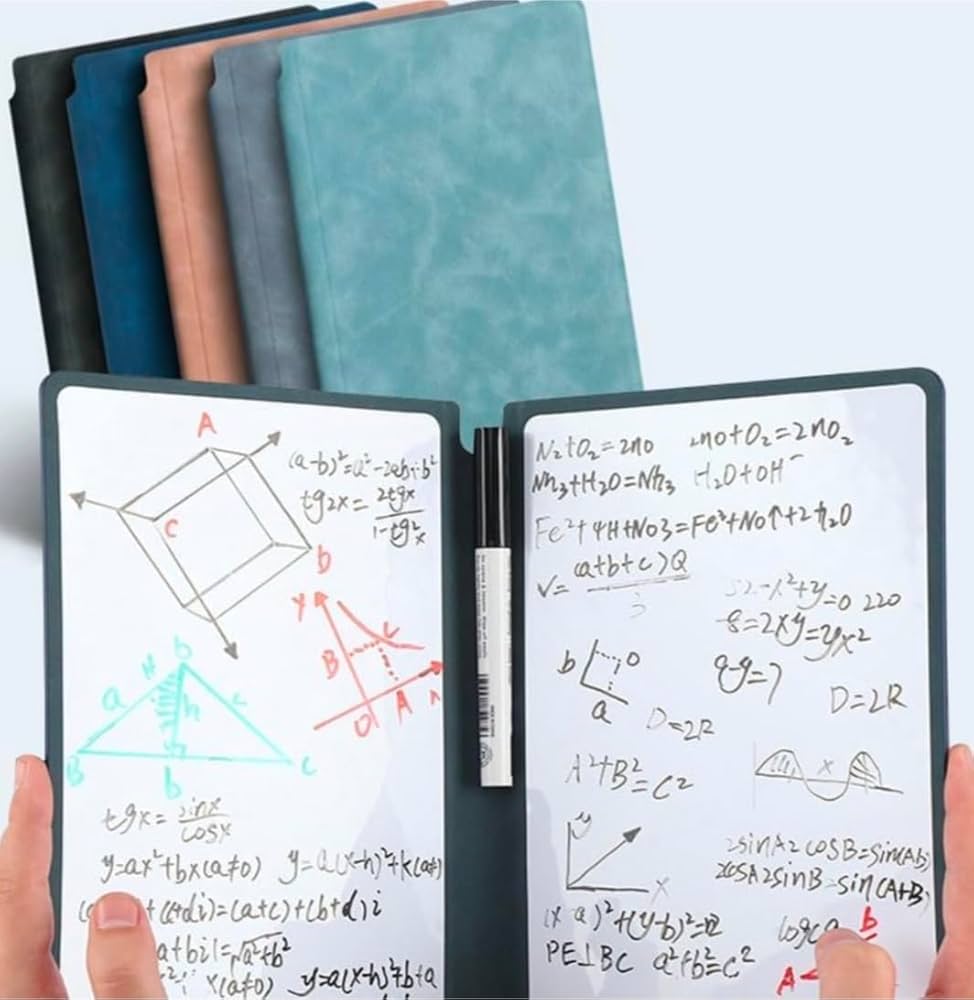 A
C
D
(a-b)²=a²-2ab+b²
tg2x= 2tgx
1-tg²x
Y
B
C
O
A
b
a
H
h
c
B
b
C
tgx= sinx
cosx
y=ax²+bx(a≠0) y=a(x-h)²+k(a≠)
+(c+di)=(a+c)+(b+d)i
a+bi|=√a²+b²
x(a≠0) y=a(x-h)²+b+a
N₂+O₂=2no 2no+O₂=2nO₂
Nh₃+H₂O=Nh₃ H₂O+OH⁻
Fe²+4H+No3=Fe³+No↑+2h₂O
V= (a+b+c)Q
3
52-x²+y=0 220
8=2xy=yx²
b
O
a
D=2R
D=2R
A²+B²=C²
X
y
X
2sinA2cosB=sin(Ab)
2cosA2sinB=sin(A+B)
(x-a)²+(y-b)²=
PE⊥BC a²+b²=c²
logca
b
A